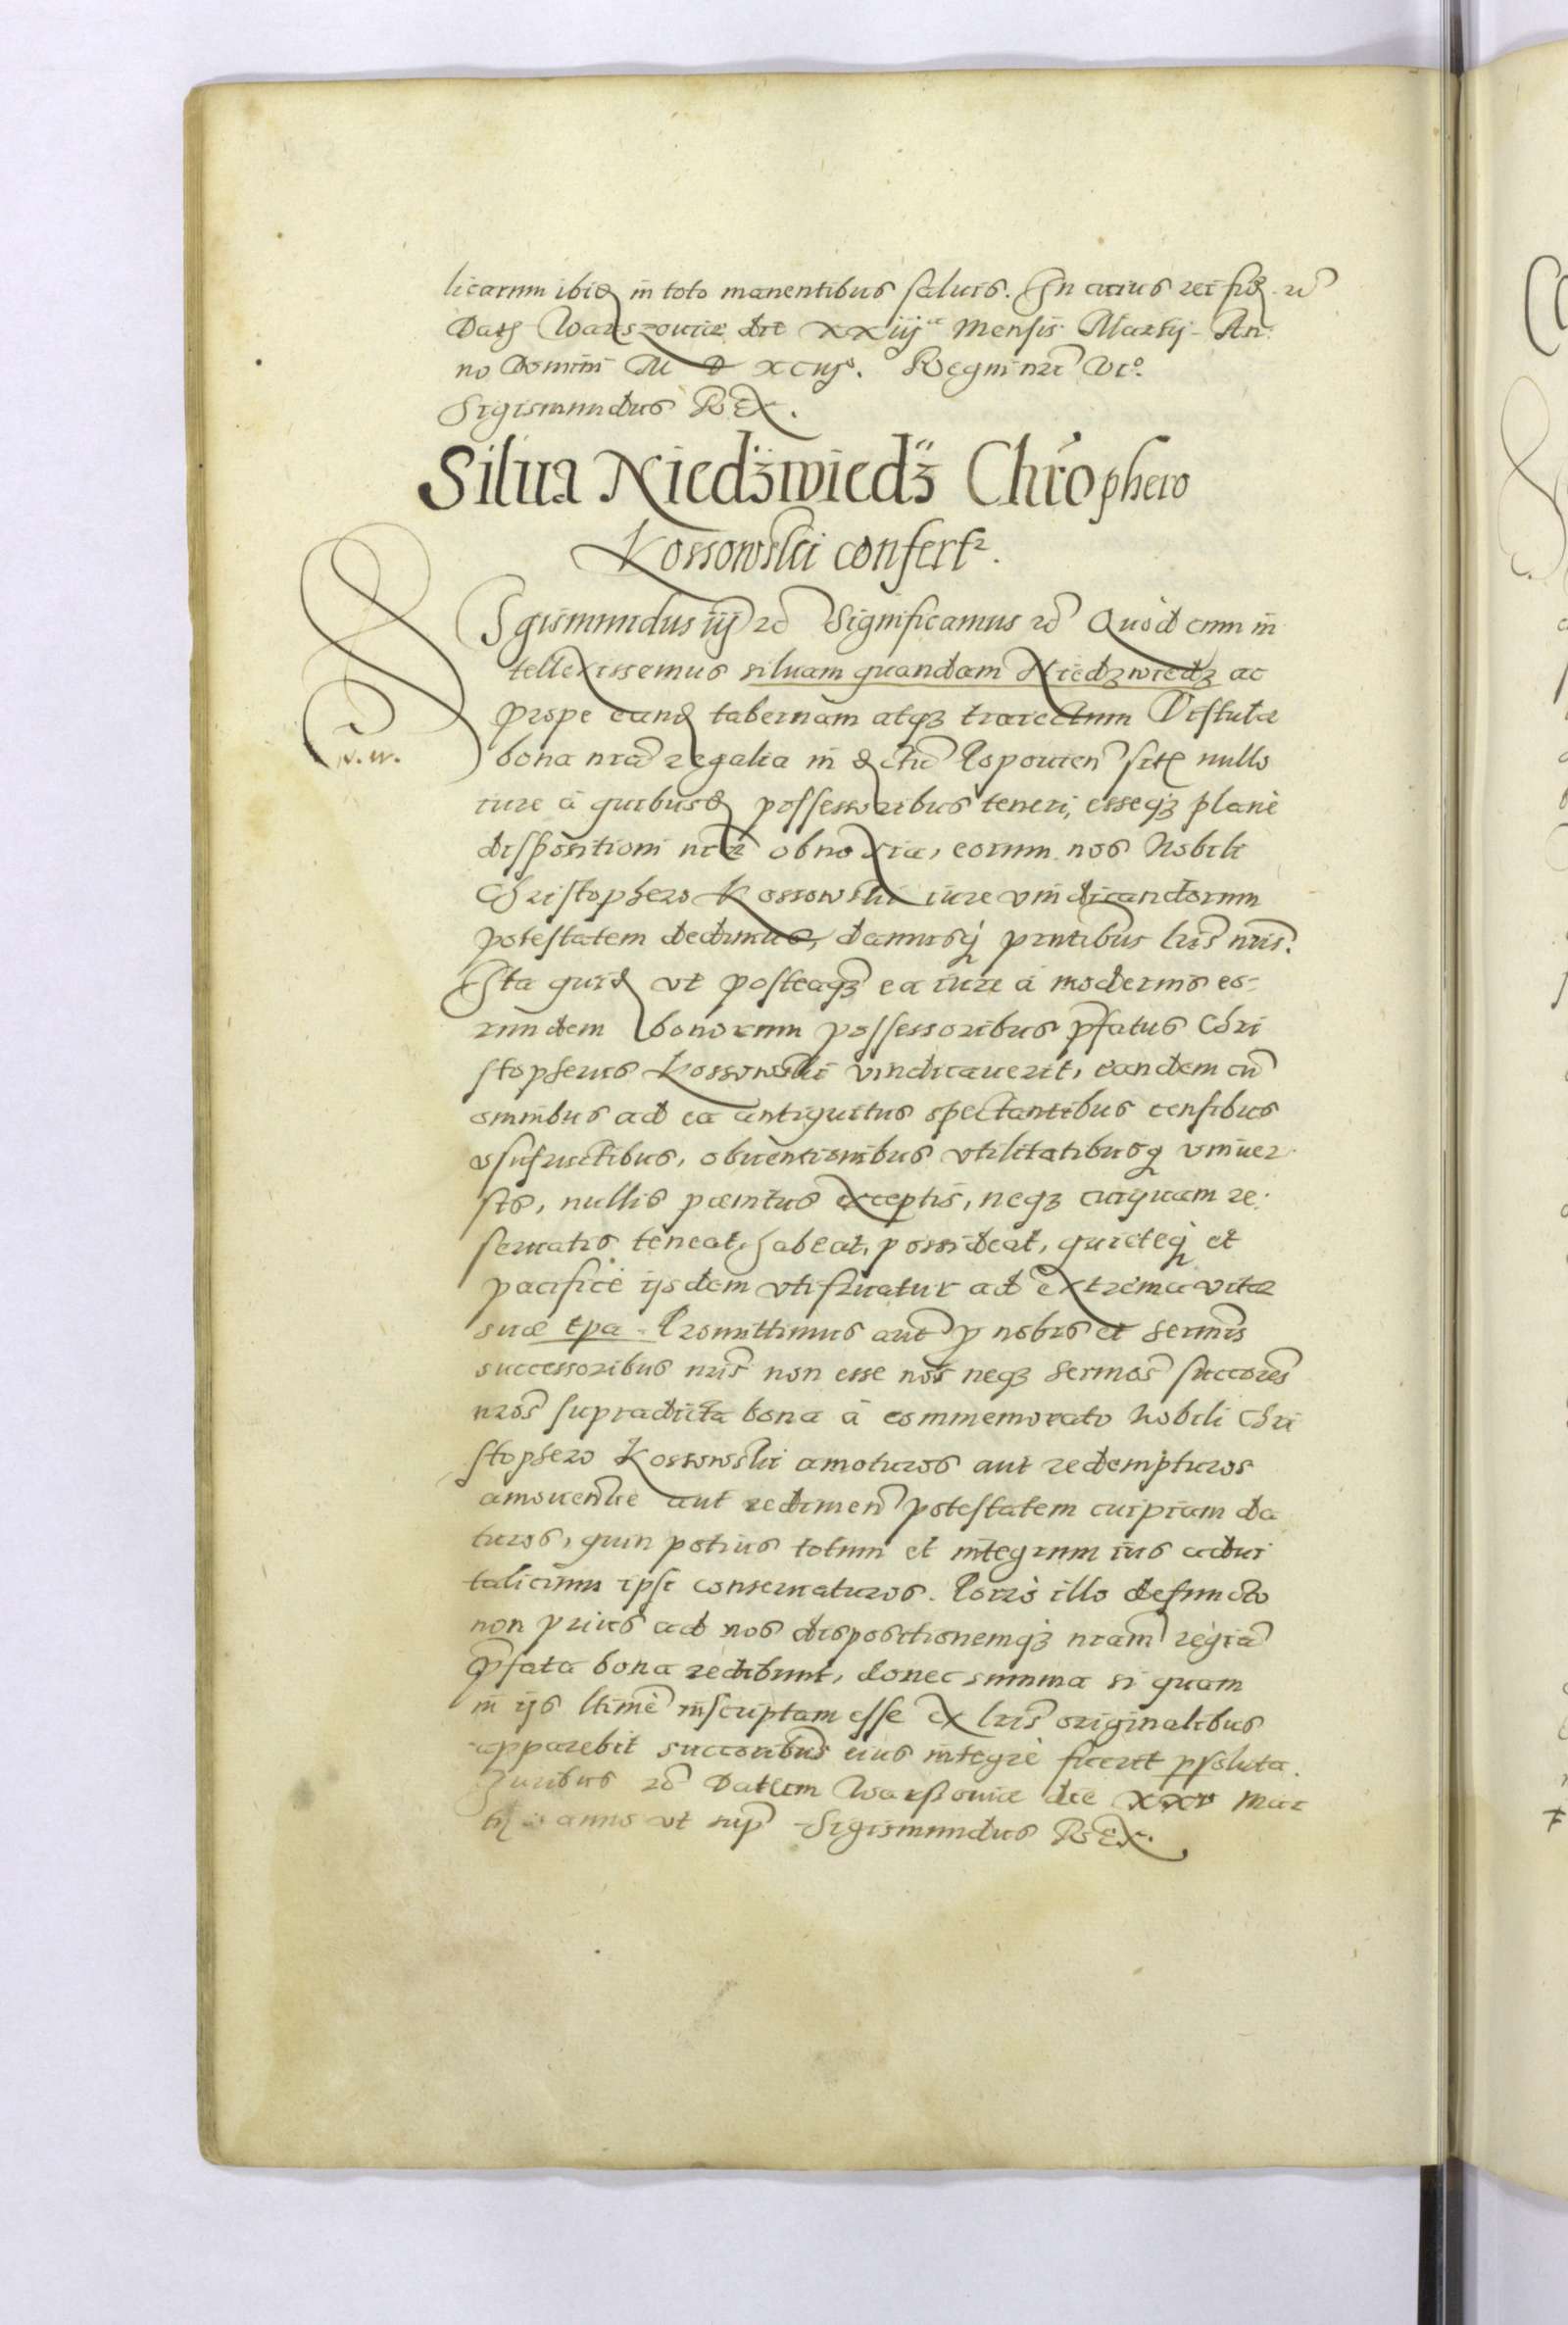 licarum ibid in toto manentibus saluis. In cuius rei fid. etc
Dat Warszouiæ die XXiij mensis Martij An:
no Domini M D XCiijº. Regni nri Viº.
Sigismundus REX.
Silua Niedźwiedź Chrophero
Kossowski confertr.
Sigismundus iij etc Significamus etc Quòd cum in
tellexissemus siluam quandam Niedzwiedz ac
prope eand tabernam atqz traiectum Vistulæ
bona nra regalia in Loponien sita nullo
iure à quibusd possessoribus teneri, esseqz planè
dispositioni nræ obnoxia, eorum nos Nobili
Christophero Kossowski iure vindicandorum
potestatem dedimus, damusq pntibus lris nris.
Ita quid vt posteaqz ea iure à modernis eo-
rundem bonorum possessoribus pfatus Chri
stopherus Kossowski vindicauerit, eandem cu
omnibus ad ea antiquitus spectantibus censibus
vsufructibus, obuentionibus vtilitatibusq vniuer
sis, nullis pænitus exceptis, neqz cuiquam re.
seruatis teneat, habeat, possideat, quieteq et
pacificè ijsdem vtifruatur ad extrema vitæ
suæ tpa. Promittimus aut p nobis et sermis
successoribus nris non esse nos neqz sermos succores
nros supradicta bona à commemorato Nobili Chri
stophero Kossowski amoturos aut redempturos
amouendie aut redimen potestatem cuipiam da
turos, quin potius totum et integrum ius adui
talicium ipsi conseruaturos. Porrò illo defuncto
non prius ad nos dispositionemqz nram regia
pfata bona redibunt, donec summa si quam
in ijs ltimè inscriptam esse ex lris originalibus
apparebit succoribus eius integrè fuerit psoluta.
Iuribus etc Datum Warssouiæ die XXV Mar
tij anno vt sup Sigismundus REX.